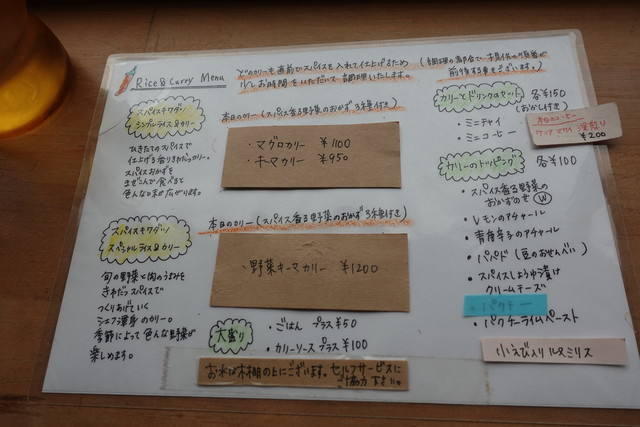 Rice & Curry Menu
どのカリーも直前でスパイスを入れて仕上げるため
少しお時間をいただいて調理いたします。
(調理の都合で、提供の順番が
前後する事もございます。)
スパイスキワダツ
シングルライス&カリー
ひきたてのスパイスで
仕上げる香りきわだつカリー。
スパイスおかずを
まぜこんで食べると
色んな味が広がります。
本日のカリー(スパイス香る野菜のおかず3種付き)
・マグロカリー ¥1100
・キーマカリー ¥950
スパイスキワダツ
スペシャルライス&カリー
旬の野菜と肉のうまみを
きわだつスパイスで
つくりあげていく
シェフ渾身のカリー。
季節によって色んな野菜が
楽しめます。
本日のカリー(スパイス香る野菜のおかず3種付き)
・野菜キーマカリー ¥1200
大盛り
・ごはん プラス¥50
・カリーソースプラス ¥100
お水は本棚の上にございます。セルフサービスに
ご協力下さい。
カリーとドリンクのセット 各¥150
(おかし付き)
・ミニチャイ
・ミニコーヒー
本日のコーヒー
深煎り
¥200
カリーのトッピング 各¥100
・スパイス香る野菜の
おかずのせ W
・レモンのアチャール
・青唐辛子のアチャール
・パパド (豆のおせんべい)
・スパイスしょうゆ漬け
クリームチーズ
・パクチー
・パクチーライムペースト
小えび入りルヌミリス